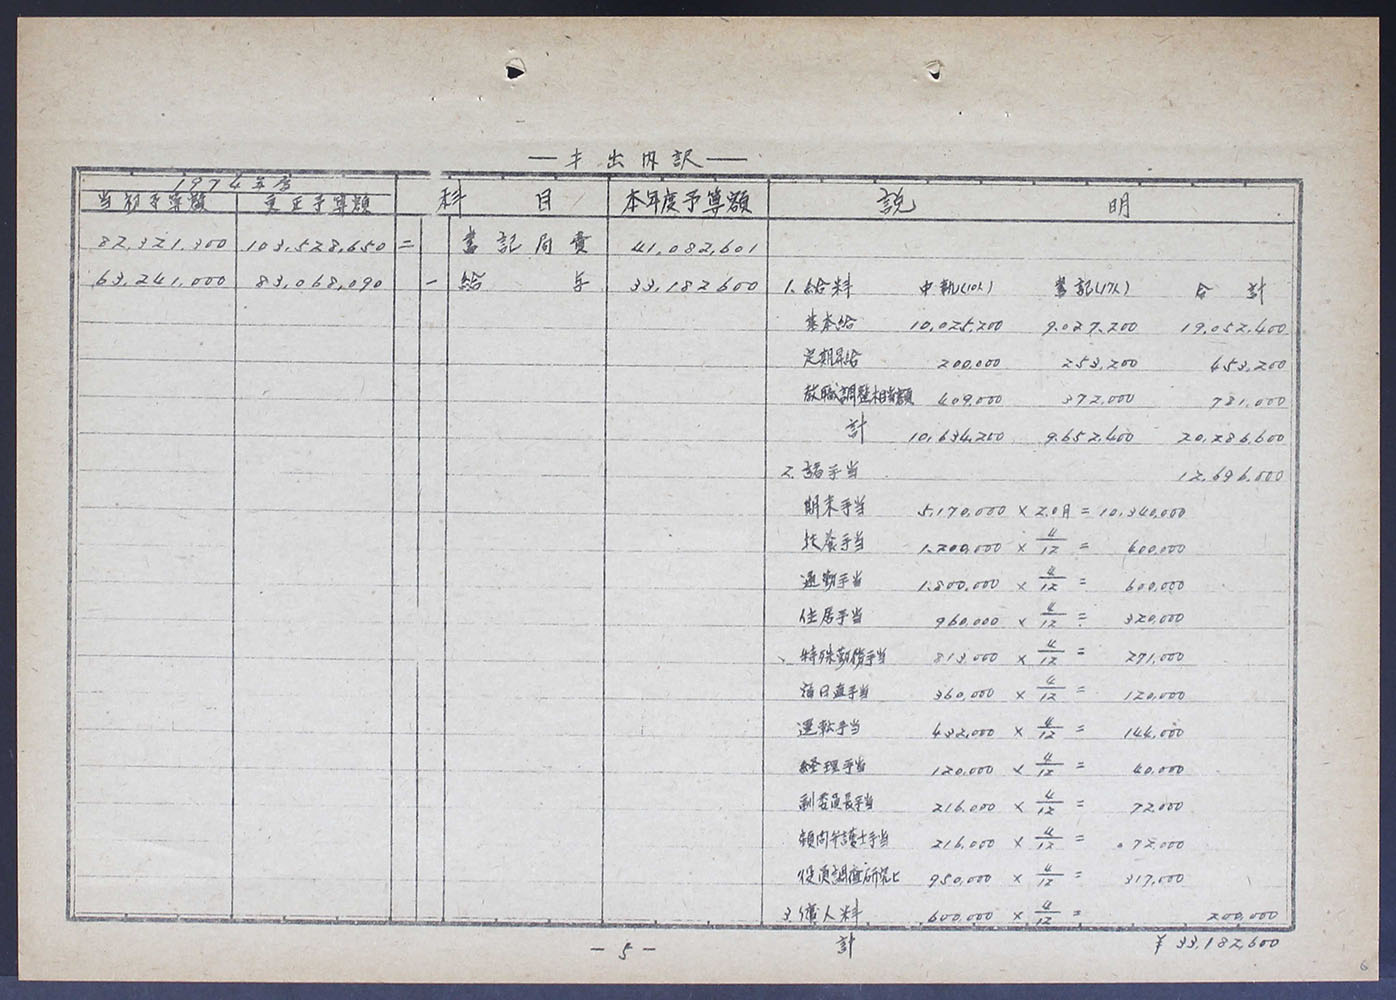 — 支出内訳 —
1974年度 科 目 本年度予算額 説 明
当初予算額 更正予算額
82,321,300 103,528,650 二 書記局費 41,082,601
63,241,000 83,068,090 一 給 与 33,182,600 1.給料 中執(10人) 書記(17人) 合 計
基本給 10,025,200 9,027,200 19,052,400
定期昇給 200,000 253,200 453,200
教職調整相当額 409,000 372,000 781,000
計 10,634,200 9,652,400 20,286,600
2.諸手当 12,696,000
期末手当 5,170,000 × 2.0月 = 10,340,000
扶養手当 1,200,000 × 4/12 = 400,000
通勤手当 1,800,000 × 4/12 = 600,000
住居手当 960,000 × 4/12 = 320,000
特殊勤務手当 813,000 × 4/12 = 271,000
宿日直手当 360,000 × 4/12 = 120,000
運転手当 432,000 × 4/12 = 144,000
経理手当 120,000 × 4/12 = 40,000
副委員長手当 216,000 × 4/12 = 72,000
顧問弁護士手当 216,000 × 4/12 = 72,000
役員調査研究ヒ 950,000 × 4/12 = 317,000
3.傭人料 600,000 × 4/12 = 200,000
計 ¥33,182,600
— 5 —
6